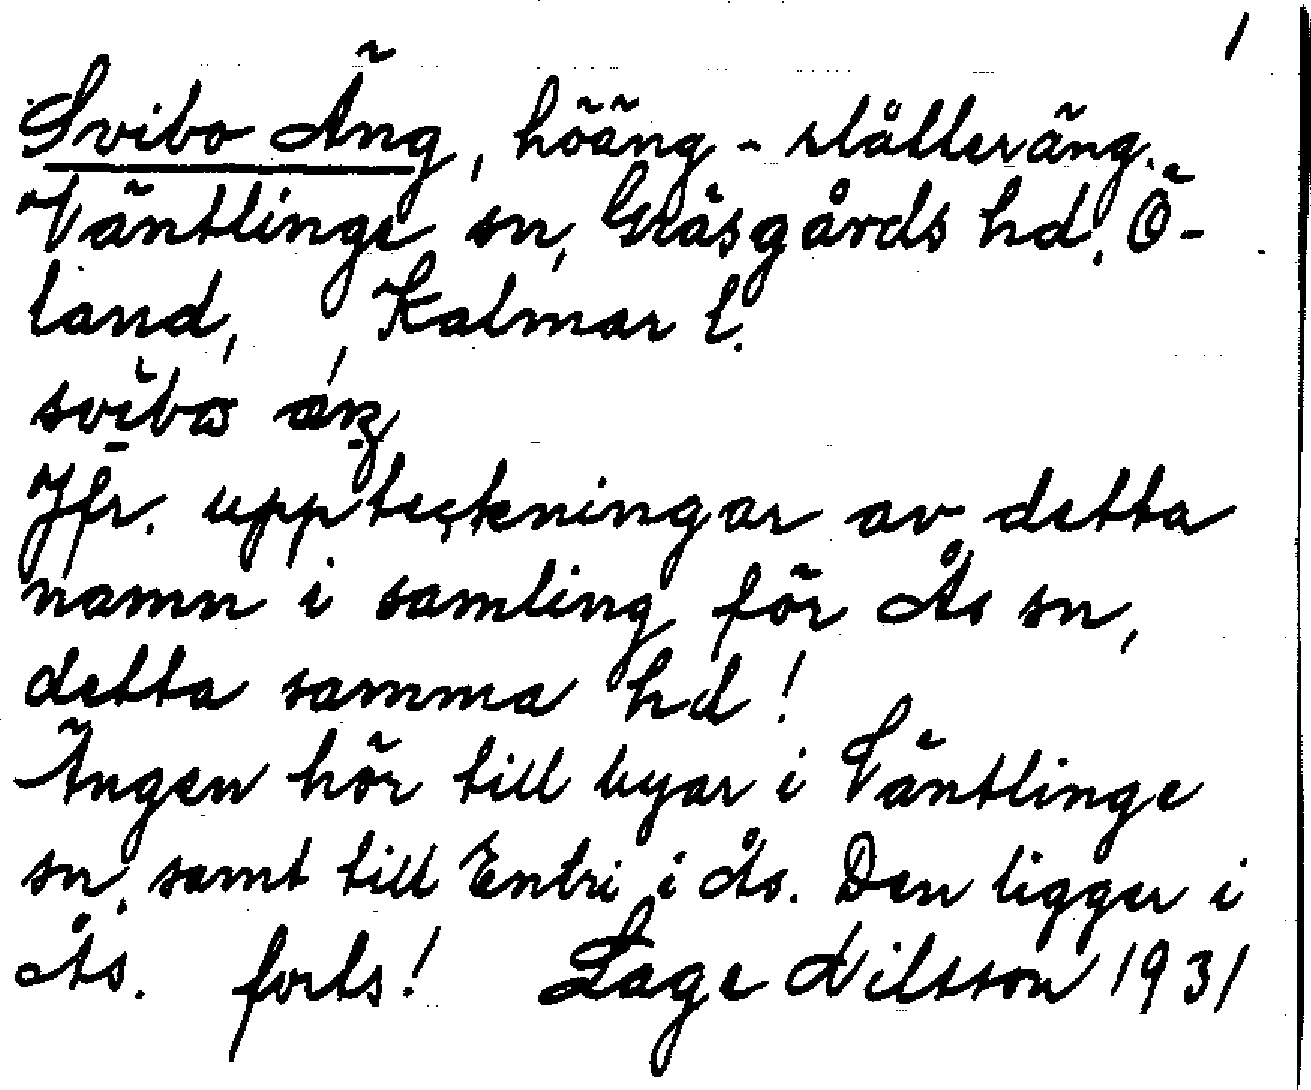 1
Svibo Äng, höäng - slåtteräng.
Väntlinge sn, Gräsgårds hd. Ö-
land, Kalmar l.
svibo äŋ
Jfr. uppteckningar av detta
namn i samling för Ås sn,
detta samma hd!
Ängen hör till byar i Väntlinge
sn. samt till Enbri i Ås. Den ligger i
Ås. forts! Lage Nilsson 1931